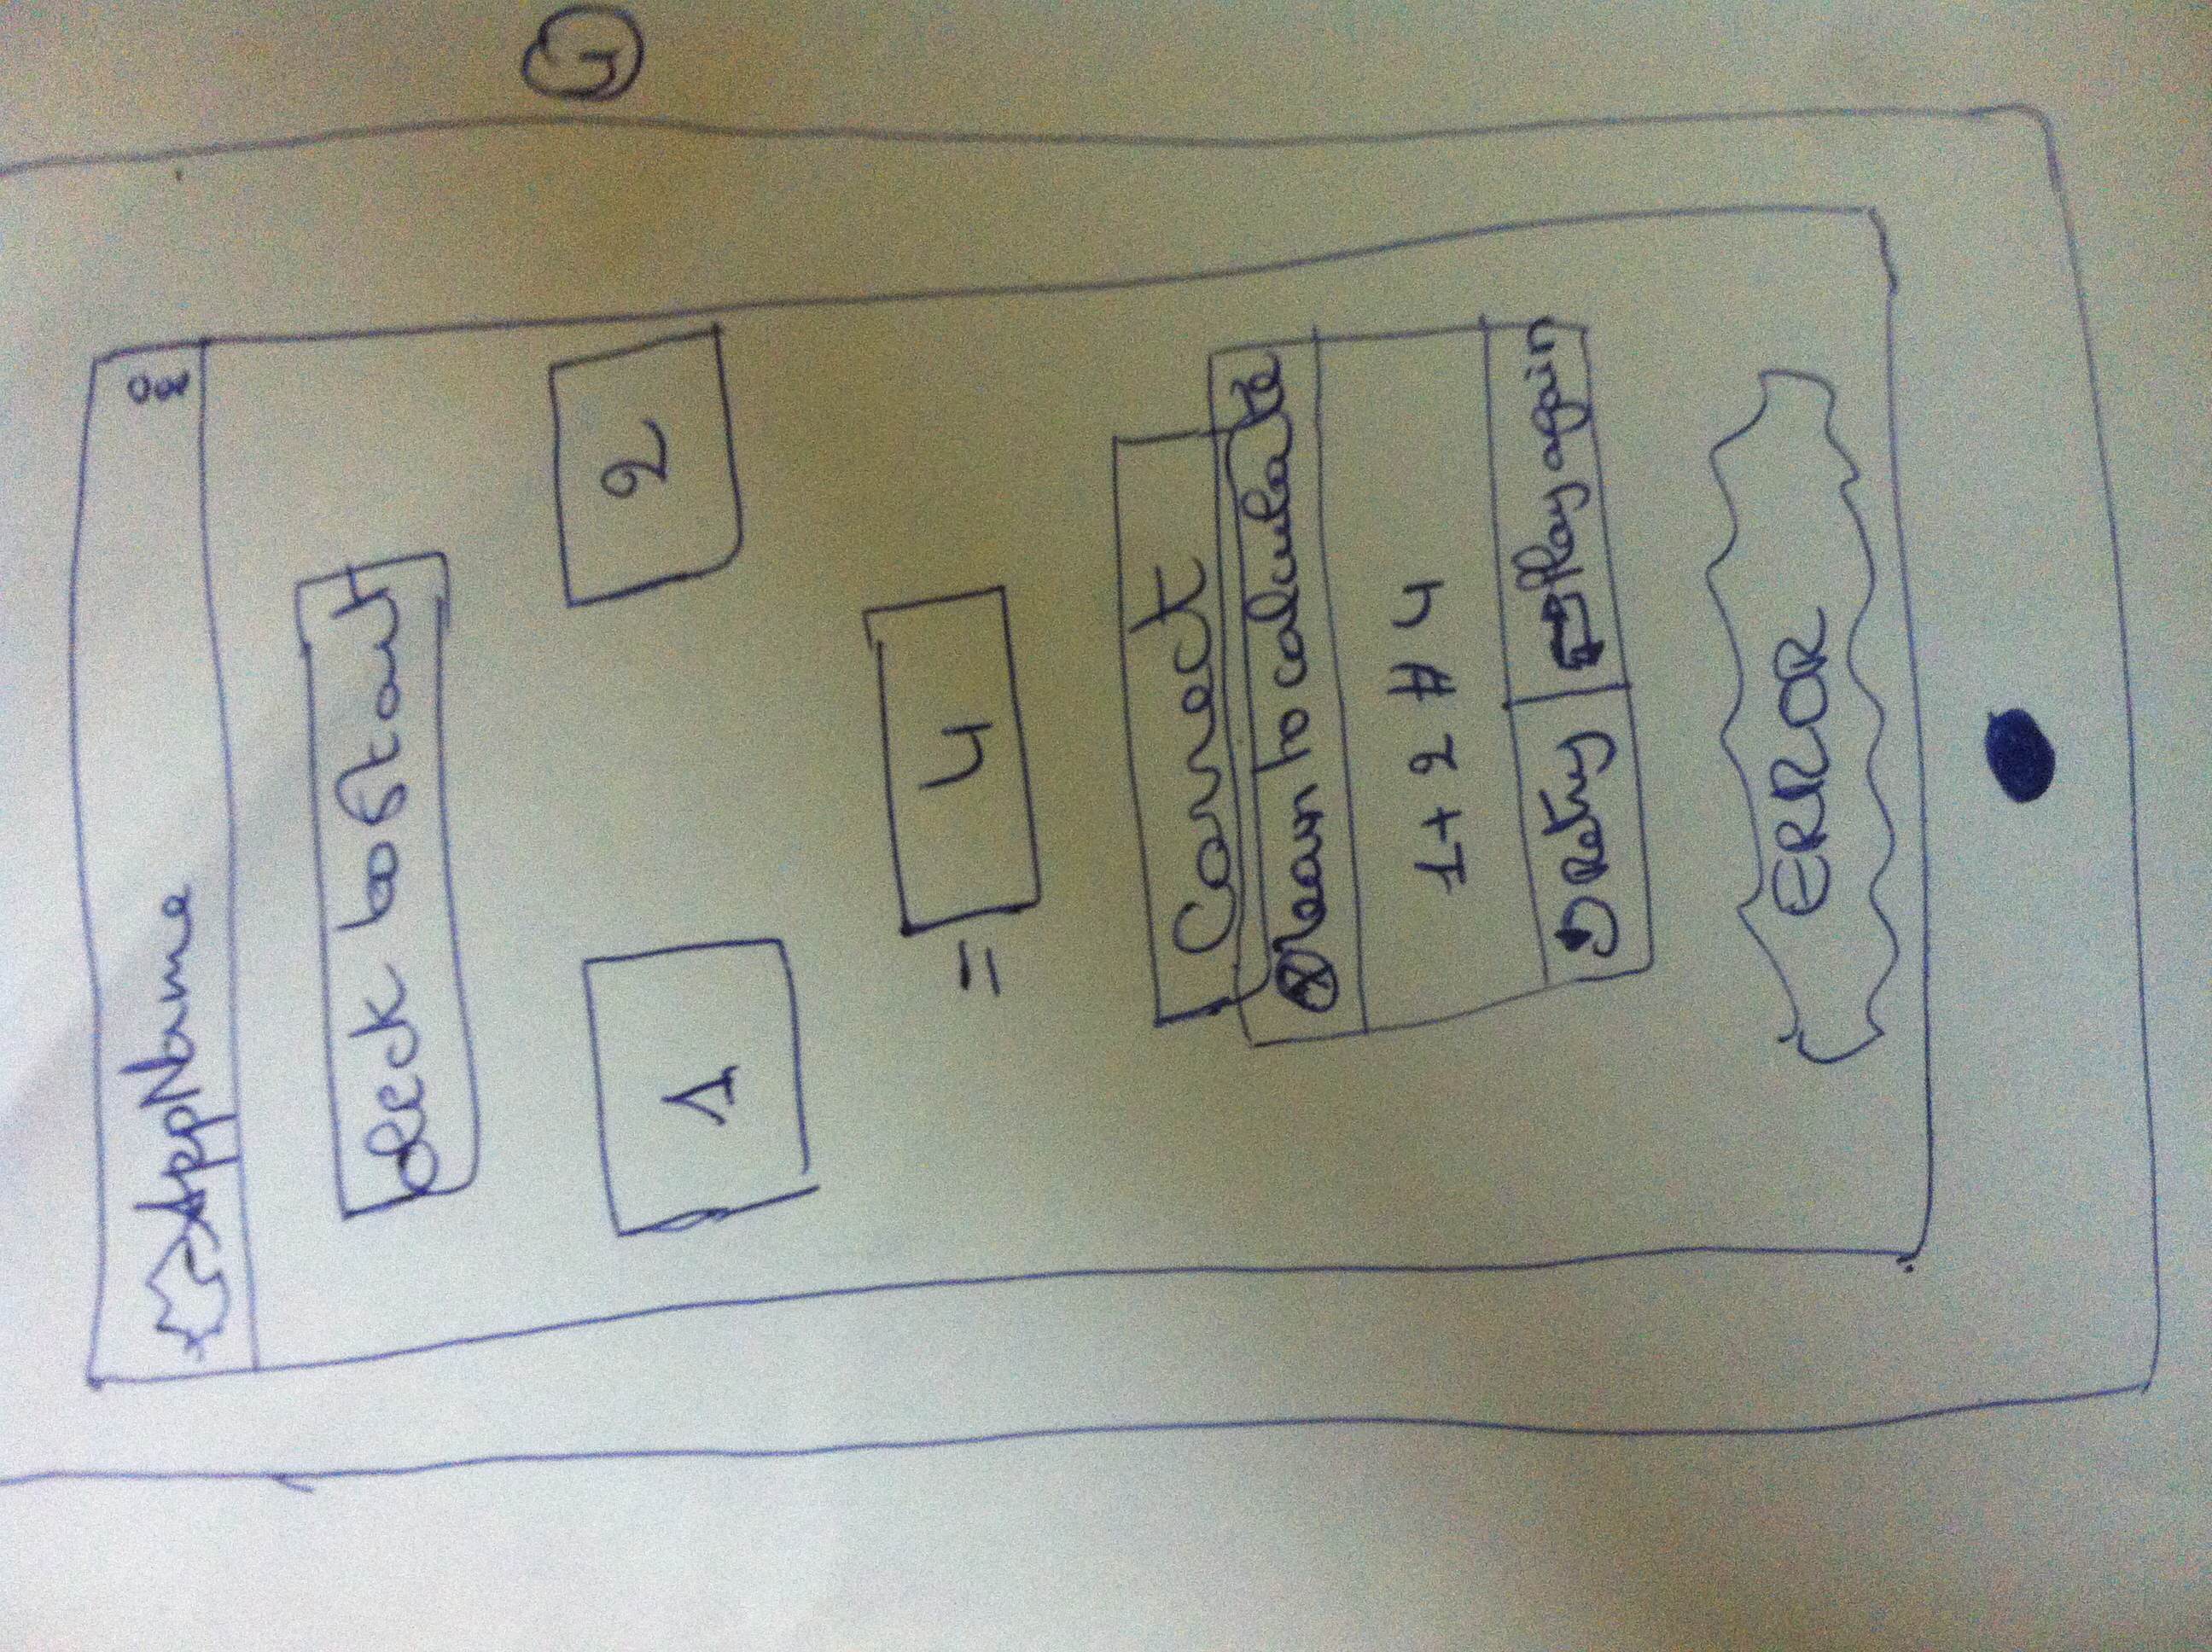 AppName
click to start
1 2
4
= 4
Correct
learn to calculate
1 + 2 # 4
Retry Play again
ERROR